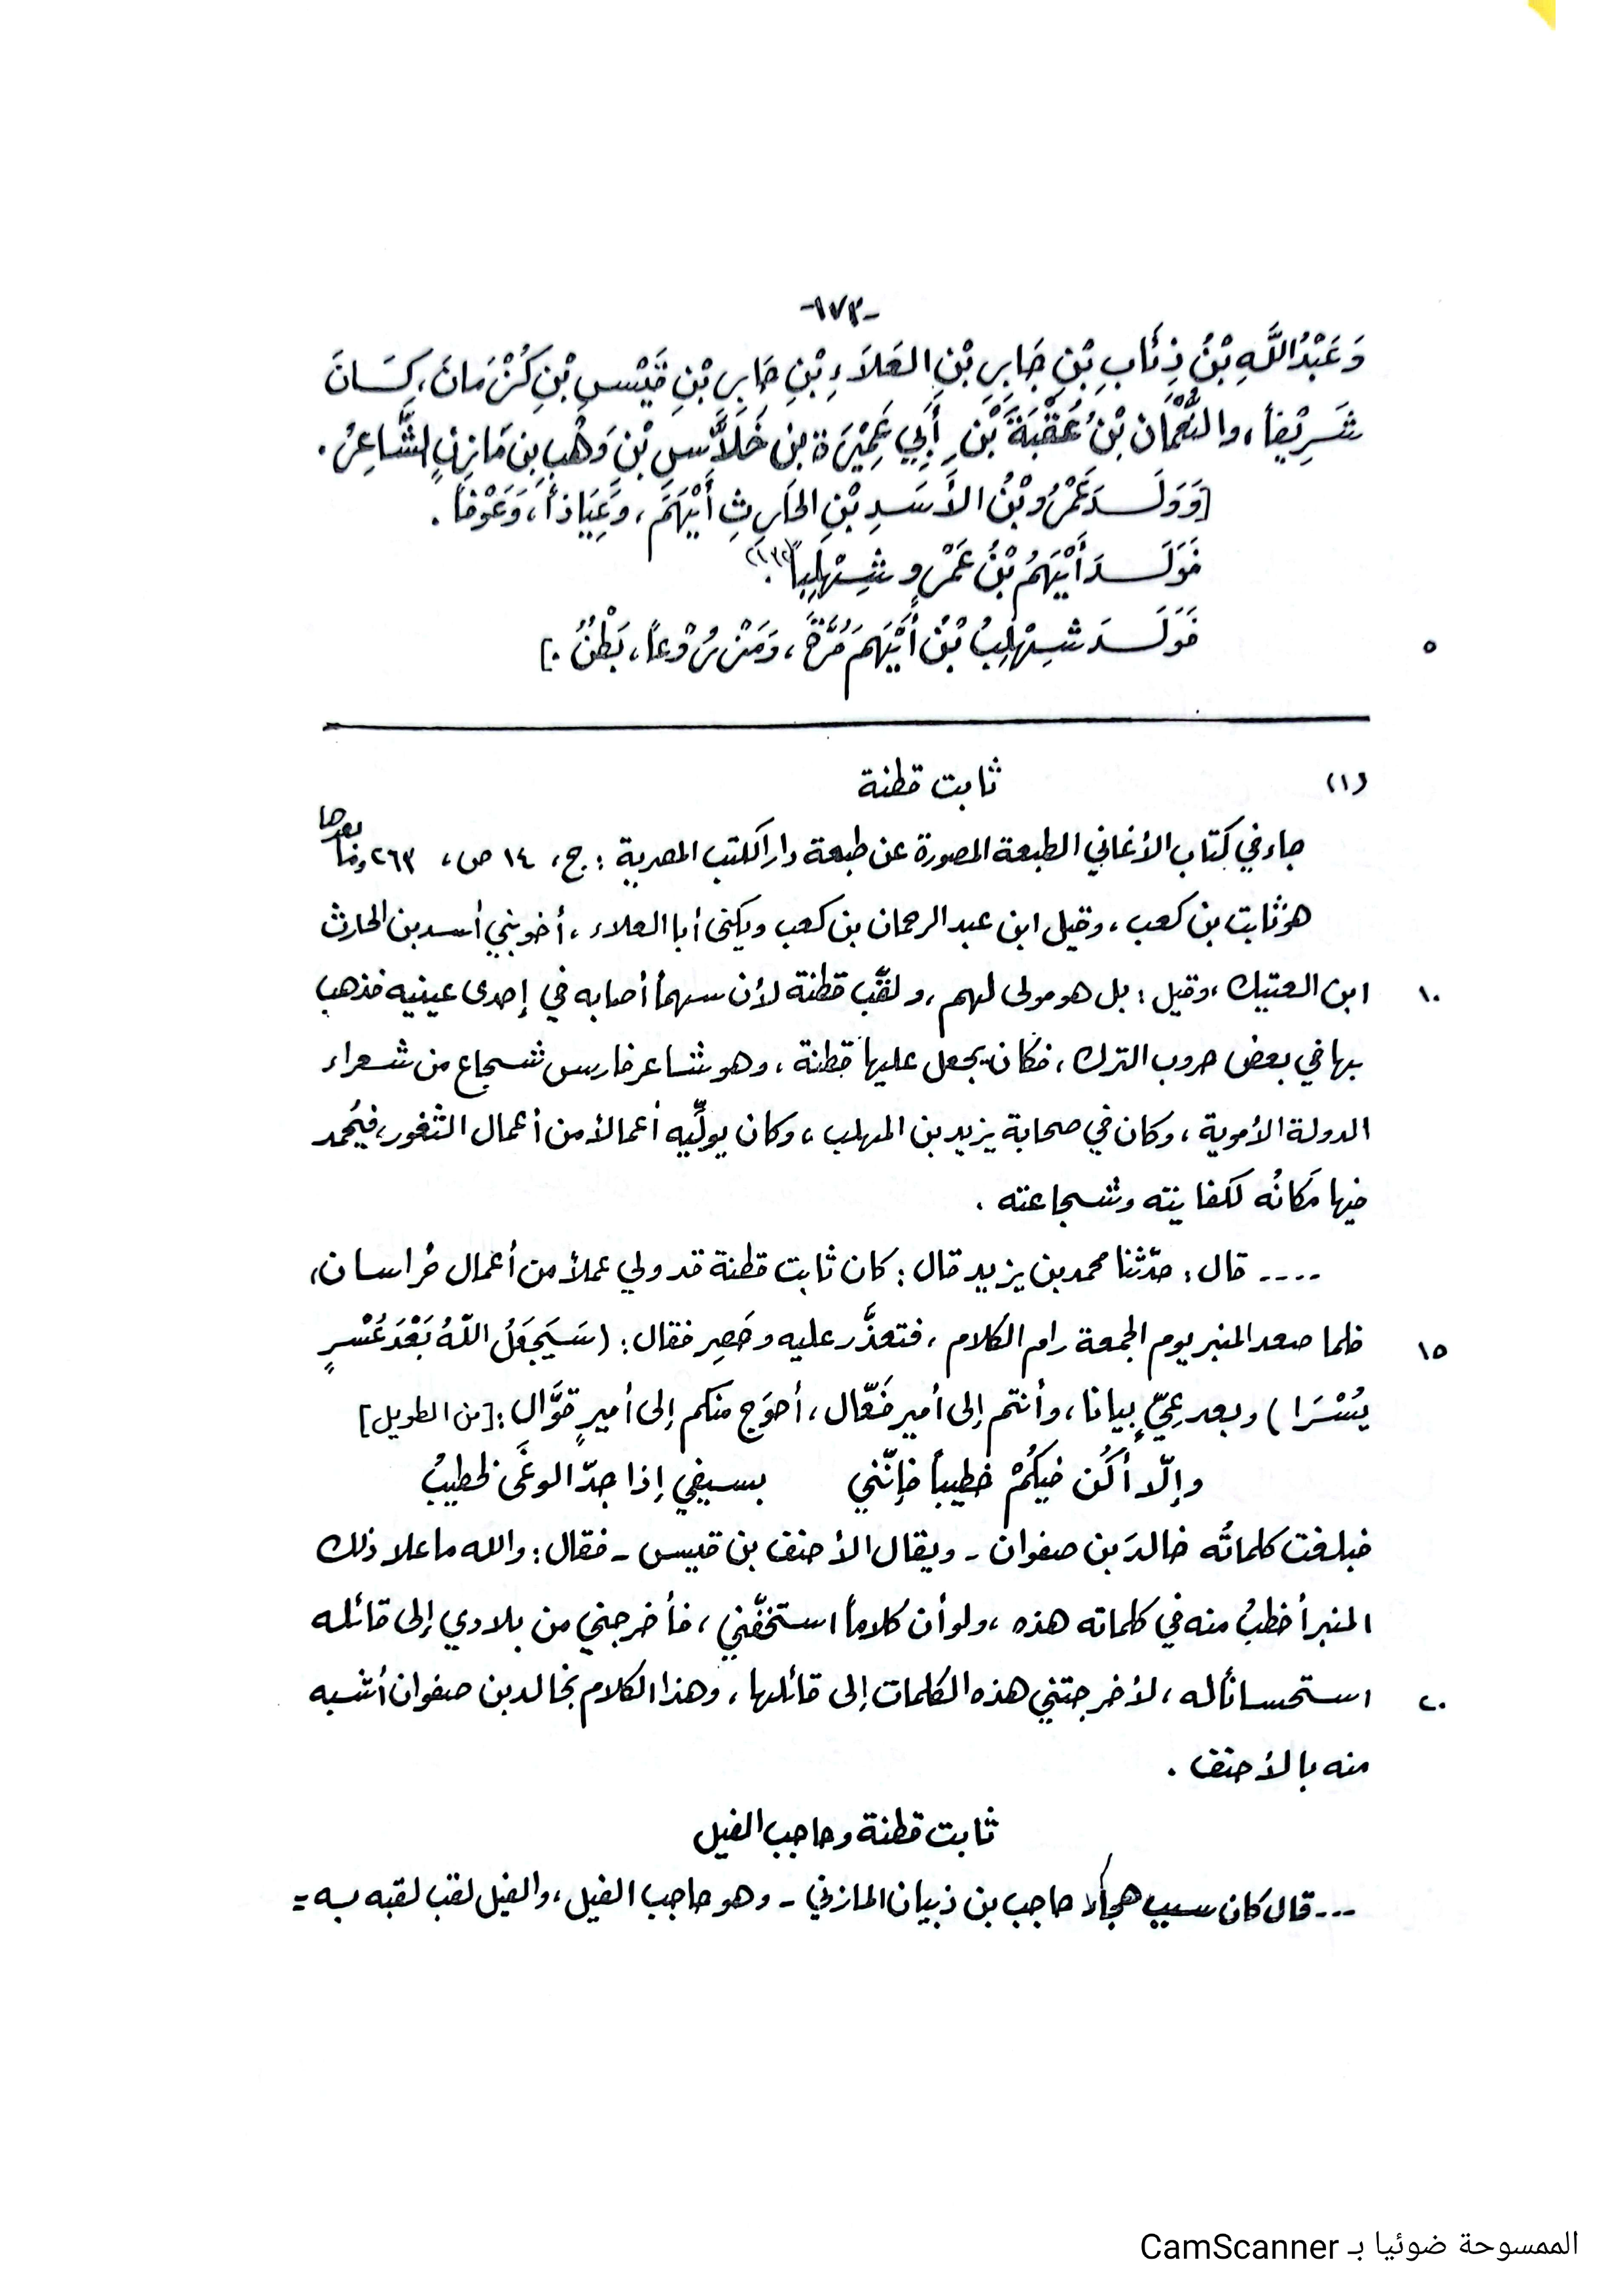 -١٧٣-
وَعَبْدُ اللَّهِ بْنُ ذِئَابِ بْنِ جَابِرِ بْنِ العَلَاءِ بْنِ جَابِرِ بْنِ قَيْسِ بْنِ كُزْمَانَ، كَانَ
شَرِيْفاً، والنُّعْمَان بْنُ عُقْبَةَ بْنِ أَبِي عَمِيْرَة بن خَلَّاسِ بْنِ وَهْبِ بن مَازِنٍ الشَّاعِرُ .
[وَوَلَدَ عَمْرُو بْنُ الأَسَدِ بْنِ الحَارِثِ أَيْهَمَ، وَعِيَاذاً، وَعَوْفاً .
فَوَلَدَ أَيْهَمُ بْنُ عَمْرٍو شِهْلِباً .
٥ فَوَلَدَ شِهْلِبُ بْنُ أَيْهَمَ مُرَّةَ، وَمَزْرُوْعاً، بَطْنٌ .]
(١) ثابت قطنة
جاء في كتاب الأغاني الطبعة المصورة عن طبعة دار الكتب المصرية : ج، ١٤ ص، ٢٦٣ وما بعدها
هو ثابت بن كعب، وقيل ابن عبد الرحمان بن كعب ويكنى أبا العلاء، أخو بني أسد بن الحارث
١٠ ابن العتيك، وقيل : بل هو مولى لهم، ولقَّب قطنة لأن سهماً أصابه في إحدى عينيه فذهب
بها في بعض حروب الترك، فكان يجعل عليها قطنة، وهو شاعر فارس شجاع من شعراء
الدولة الأموية، وكان في صحابة يزيد بن المهلب، وكان يولِّيه أعمالاً من أعمال الثغور، فيُحمد
فيها مَكانُه لكفايته وشجاعته .
.... قال : حدّثنا محمد بن يزيد قال : كان ثابت قطنة قد ولي عملاً من أعمال خُراسان،
١٥ فلما صعد المنبر يوم الجمعة رام الكلام، فتعذَّر عليه وحَصِر فقال : (سَيَجعَلُ اللّهُ بَعْدَ عُسْرٍ
يُسْرَا) وبعد عِيٍّ بيانا، وأنتم إلى أمير فَعّال، أحوَج منكم إلى أميرٍ قوَّال : [من الطويل]
وإلّا أكُن فيكُمْ خطيباً فإنّني بسيفي إذا جدّ الوغَى لخطيبُ
فبلغت كلماتُه خالدَ بن صفوان - ويقال الأحنف بن قيس - فقال : والله ما علا ذلك
المنبر أخطبُ منه في كلماته هذه، ولو أن كلاماً استخفّني، فأخرجني من بلادي إلى قائله
٢٠ استحساناً له، لأخرجتني هذه الكلمات إلى قائلها، وهذا الكلام بخالد بن صفوان أشبه
منه بالأحنف .
ثابت قطنة وحاجب الفيل
... قال كان سبب هجاء حاجب بن ذبيان المازني - وهو حاجب الفيل، والفيل لقب لقبه به =
الممسوحة ضوئيا بـ CamScanner